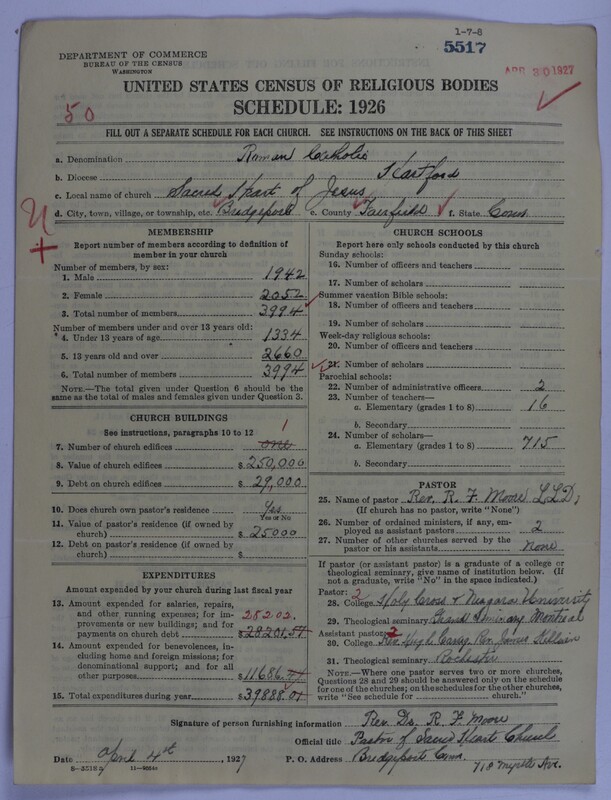 1-7-8
5517
APR 30 1927
DEPARTMENT OF COMMERCE
BUREAU OF THE CENSUS
WASHINGTON
UNITED STATES CENSUS OF RELIGIOUS BODIES
SCHEDULE: 1926
50
FILL OUT A SEPARATE SCHEDULE FOR EACH CHURCH. SEE INSTRUCTIONS ON THE BACK OF THIS SHEET
a. Denomination Roman Catholic
b. Diocese Hartford
c. Local name of church Sacred Heart of Jesus
d. City, town, village, or township, etc. Bridgeport e. County Fairfield f. State Conn
MEMBERSHIP
Report number of members according to definition of
member in your church
Number of members, by sex:
1. Male 1942
2. Female 2052
3. Total number of members 3994
Number of members under and over 13 years old:
4. Under 13 years of age 1334
5. 13 years old and over 2660
6. Total number of members 3994
NOTE.—The total given under Question 6 should be
same as the total of males and females given under Question 3.
CHURCH BUILDINGS
See instructions, paragraphs 10 to 12
1
7. Number of church edifices one
8. Value of church edifices $250,000
9. Debt on church edifices $29,000
10. Does church own pastor's residence? Yes
Yes or No
11. Value of pastor's residence (if owned by
church) $25000
12. Debt on pastor's residence (if owned by
church) $
EXPENDITURES
Amount expended by your church during last fiscal year
13. Amount expended for salaries, repairs,
and other running expenses; for im-
provements or new buildings; and for 28202.
payments on church debt $28201.57
14. Amount expended for benevolences, etc.,
including home and foreign missions; for
denominational support; and for all
other purposes $11686.
15. Total expenditures during year $39888.01
CHURCH SCHOOLS
Report here only schools conducted by this church
Sunday schools:
16. Number of officers and teachers
17. Number of scholars
Summer vacation Bible schools:
18. Number of officers and teachers
19. Number of scholars
Week-day religious schools:
20. Number of officers and teachers
21. Number of scholars
Parochial schools:
22. Number of administrative officers 2
23. Number of teachers—
a. Elementary (grades 1 to 8) 16
b. Secondary
24. Number of scholars—
a. Elementary (grades 1 to 8) 715
b. Secondary
PASTOR
25. Name of pastor Rev. R. F. Moore LLD;
(If church has no pastor, write "None")
26. Number of ordained ministers, if any, em-
ployed as assistant pastors 2
27. Number of other churches served by the
pastor or his assistants None
If pastor (or assistant pastor) is a graduate of a college or
theological seminary, give name of institution below. (If
not a graduate, write "No" in the space indicated.)
Pastor: 2
28. College Holy Cross & Niagara University
29. Theological seminary Grand Seminary Montreal
Assistant pastor: 2
30. College Rev. Hugh Rev. James
31. Theological seminary Rochester
NOTE.—Where one pastor serves two or more churches,
Questions 28 and 29 should be answered only on the schedule
for one of the churches; on the schedules for the other churches,
write "See schedule for church."
Signature of person furnishing information Rev. Dr. R. F. Moore
Official title Pastor of Sacred Heart Church
Date April 4th, 1927 P. O. Address Bridgeport Conn.
718 Myrtle Ave.